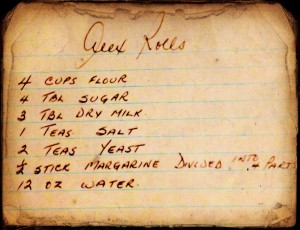 Rolls
4 CUPS FLOUR
4 TBL SUGAR
3 TBL DRY MILK
1 TEAS SALT
2 TEAS YEAST
½ STICK MARGARINE DIVIDED INTO 4 PART
12 OZ WATER